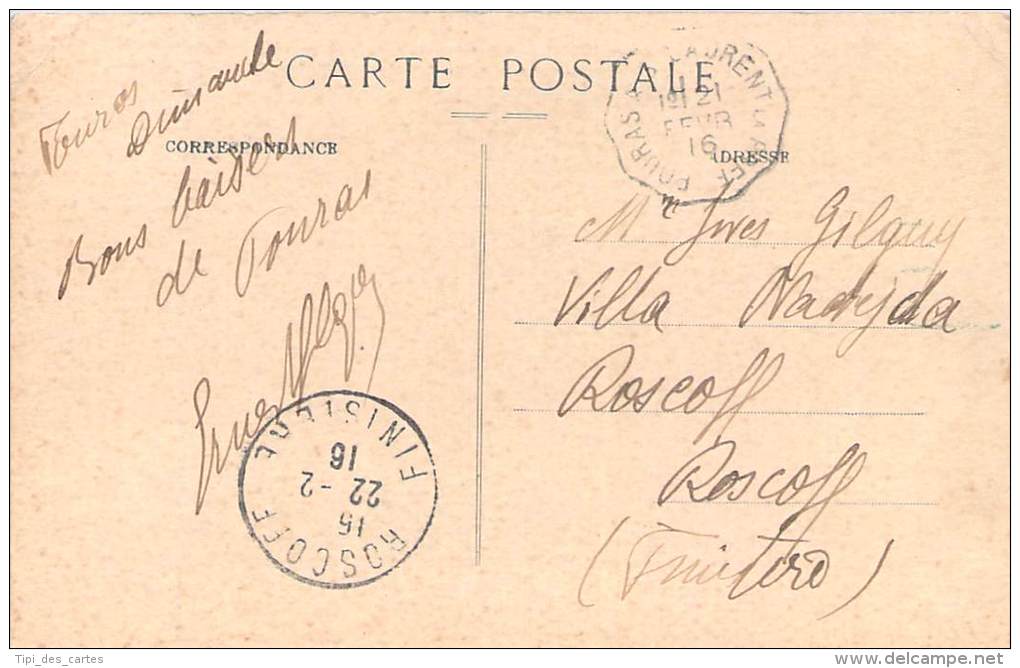 CARTE POSTALE
CORRESPONDANCE
ADRESSE
Fouras
Dimanche
Bons baisers
de Fouras
FOURAS A ST LAURENT LA PREE
1º 21
FEVR
16
Mr Yves Gilguy
Villa Nadejda
Roscoff
Roscoff
(Finistère)
ROSCOFF FINISTERE
16
22 - 2
16
Tipi_des_cartes
www.delcampe.net